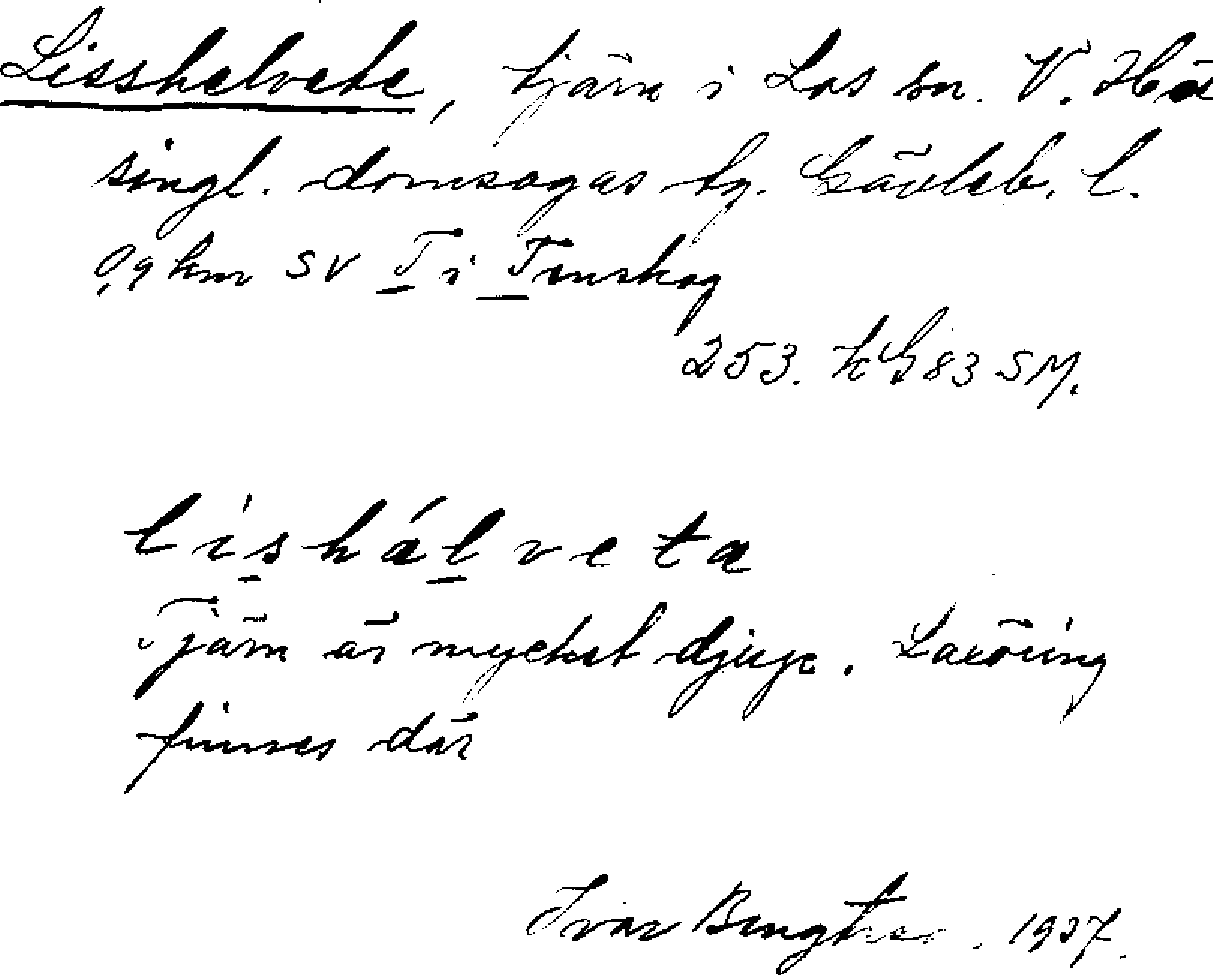 Lisshelvete, tjärn i Los sn. V. Häl
singl. domsagas tg. Gävleb. l.
0,9 km SV T i Tenskog
253. kG83 SM.
lishálveta
Tjärn är mycket djup. Laxöring
finnes där
Ivar Bengtsson. 1937.